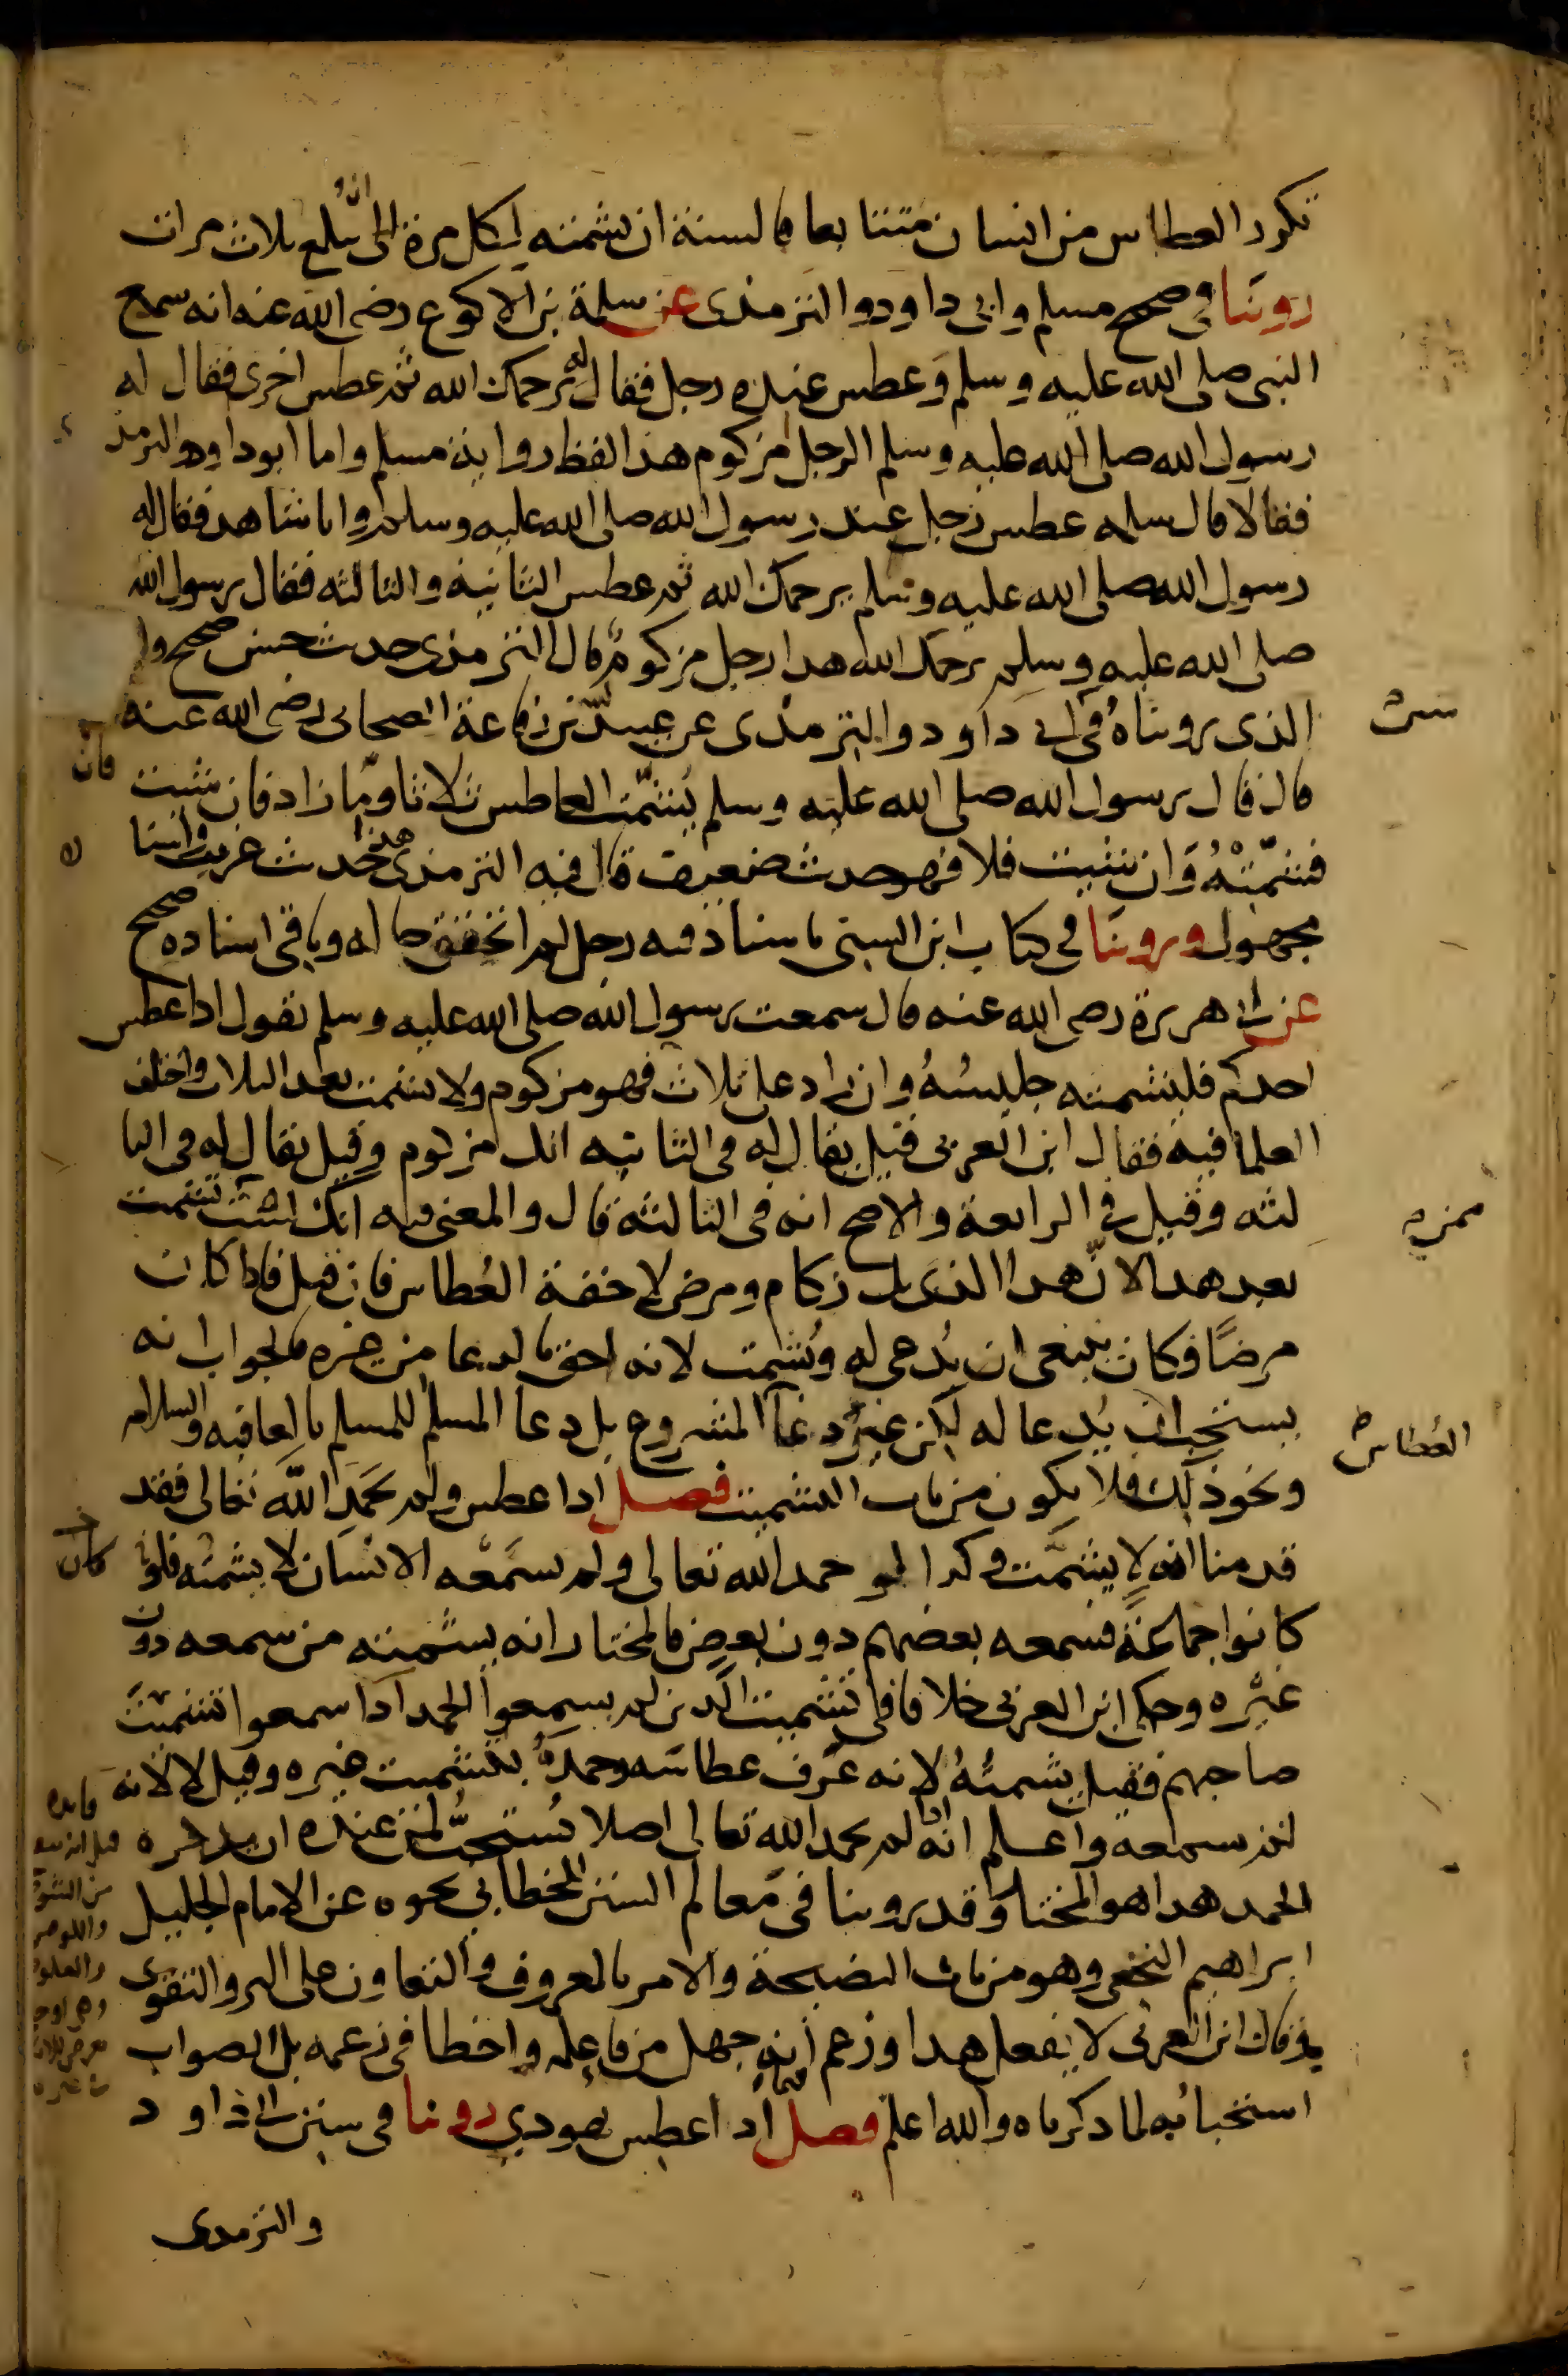 تكرر العطاس من انسان متتابعا فالسنة ان يشمته لكل مرة الى ان يبلغ ثلاث مرات
روينا في صحيح مسلم وابي داود والترمذي عن سلمة بن الاكوع رضي الله عنه انه سمع
النبي صلى الله عليه وسلم وعطس عنده رجل فقال له يرحمك الله ثم عطس اخرى فقال له
رسول الله صلى الله عليه وسلم الرجل مزكوم هذا لفظ رواية مسلم واما ابو داود والترمذ
فقالا قال سلمه عطس رجل عند رسول الله صلى الله عليه وسلم وانا شاهد فقال له
رسول الله صلى الله عليه وسلم يرحمك الله ثم عطس الثانية والثالثه فقال رسول الله
صلى الله عليه وسلم يرحمك الله هذا رجل مزكوم قال الترمذي حديث حسن صحيح وا
الذي رويناه في ابي داود والترمذي عن عبيد بن رفاعة الصحابي رضي الله عنه
قال قال رسول الله صلى الله عليه وسلم يُشمّت العاطس ثلاثا وما زاد فان شيت
فشمّتْهُ وَان شيت فلا فهو حديث ضعيف قال فيه الترمذي هذا حديث غريب واسنا
مجهول وروينا في كتاب ابن السني باسناد فيه رجل لم اتحقق حاله وباقي اسناده صحيح
عن ابي هريرة رضي الله عنه قال سمعت رسول الله صلى الله عليه وسلم يقول اذا عطس
احدكم فليشمته جليسُهُ وان زاد على ثلاث فهو مزكوم ولا يشمت بعد الثلاث واختلف
العلما فيه فقال ابن العربي قيل يقال له في الثانيه انك مزكوم وقيل يقال له في الثا
لثه وقيل في الرابعة والاصح انه في الثالثة قال والمعنى فيه انك لست تشمت
بعد هذا لانّ هذا الذي بك زكام ومرض لا خفة العُطاس فان قيل فاذا كان
مرضًا فكان ينبغي ان يُدعى له ويُشمت لانه احق بالدعا من غيره فالجواب انه
يستحب ان يُدعا له لكن غيرُ دعآ المشروع بل دعا المسلم للمسلم بالعافيه والسلامه
ونحو ذلك فلا يكون من باب التشميت فصل اذا عطس ولم يحمَدِ اللهَ تعالى فقد
قدمنا انه لا يشمّت وكذا لو حمد الله تعالى ولم يسمَعه الانسان لا يشمته فلو
كانوا جماعةً فسمعه بعضهم دون بعض فالمختار انه يشمته من سمعه دون
غيره وحكى ابن العربي خلافا في تشميت الذين لم يسمعوا الحمد اذا سمعوا تشميتَ
صاحبهم فقيل يشمتُهُ لانه عَرف عطاسَه وحمدَهُ بتشميت غيره وقيل لا لانه
لم يسمعه واعلم انه اذا لم يحمد الله تعالى اصلا يُستحبُّ لمن عنده ان يذكره
الحمد هذا هو المختار وقد روينا في مَعالم السنن للخطابي نحوه عن الامام الجليل
ابراهيم النخعي وهو من باب النصيحة والامر بالمعروف والتعاون على البر والتقوى
وقال ابن العربي لا يفعل هذا وزعم انه جهل من فاعله واخطا في زعمه بل الصواب
استحبابُه لما ذكرناه والله اعلم فصل اذا عطس يهودي روينا في سنن ابي داود
والترمدى
العُطاس
فان
كان
فايده